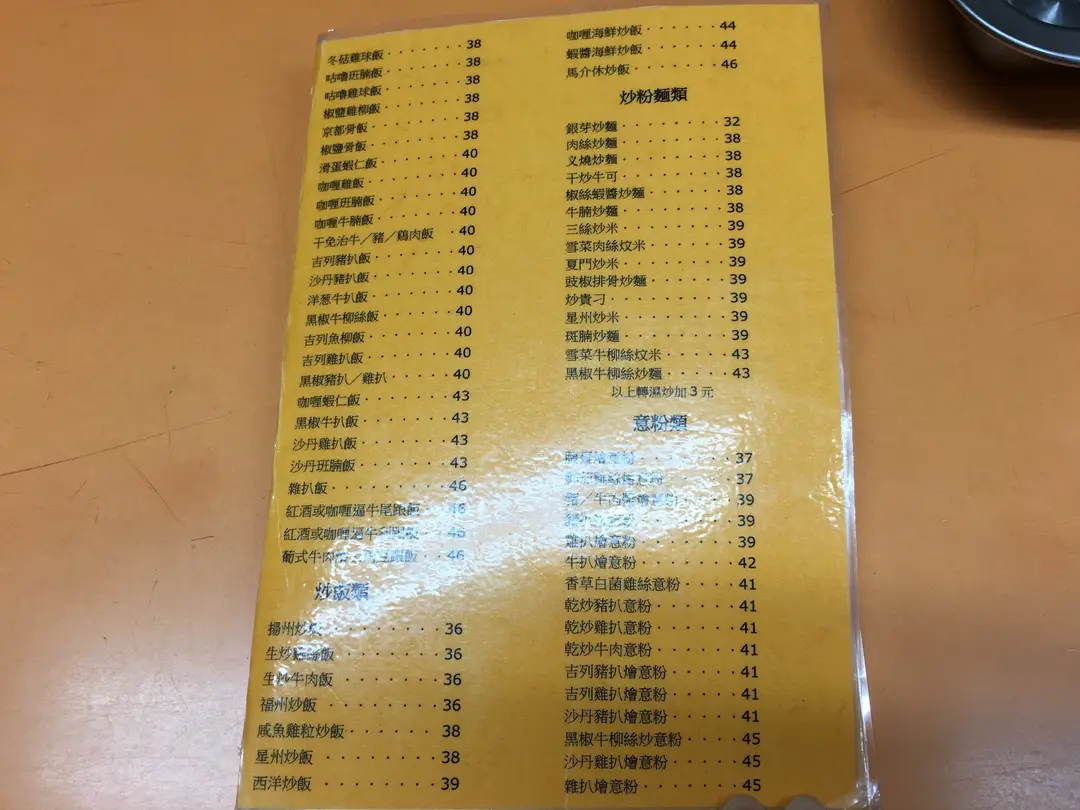 冬菇雞球飯········38
咕嚕班腩飯········38
咕嚕雞球飯········38
椒鹽雞柳飯········38
京都骨飯·········38
椒鹽骨飯·········38
滑蛋蝦仁飯········40
咖喱雞飯·········40
咖喱班腩飯········40
咖喱牛腩飯········40
干免治牛／豬／鷄肉飯 ·40
吉列豬扒飯········40
沙丹豬扒飯········40
洋葱牛扒飯········40
黑椒牛柳絲飯·······40
吉列魚柳飯········40
吉列雞扒飯········40
黑椒豬扒／雞扒······40
咖喱蝦仁飯········43
黑椒牛扒飯········43
沙丹雞扒飯········43
沙丹班腩飯········43
雜扒飯··········46
紅酒或咖喱逼牛尾跟飯 46
紅酒或咖喱逼牛 飯 46
葡式牛肉 飯 46
炒飯類
揚州炒飯·········36
生炒雞絲飯········36
生炒牛肉飯········36
福州炒飯·········36
咸魚雞粒炒飯·······38
星州炒飯·········38
西洋炒飯·········39
咖喱海鮮炒飯·······44
蝦醬海鮮炒飯·······44
馬介休炒飯········46
炒粉麵類
銀芽炒麵·········32
肉絲炒麵·········38
义燒炒麵·········38
干炒牛可·········38
椒絲蝦醬炒麵·······38
牛腩炒麵·········38
三絲炒米·········39
雪菜肉絲炆米·······39
夏門炒米·········39
豉椒排骨炒麵·······39
炒貴刁··········39
星州炒米·········39
斑腩炒麵·········39
雪菜牛柳絲炆米······43
黑椒牛柳絲炒麵······43
以上轉濕炒加 3 元
意粉類
燴意粉 37
意粉 37
豬／牛 燴意粉 39
39
雞扒燴意粉········39
牛扒燴意粉········42
香草白菌雞絲意粉·····41
乾炒豬扒意粉·······41
乾炒雞扒意粉·······41
乾炒牛肉意粉·······41
吉列豬扒燴意粉······41
吉列雞扒燴意粉······41
沙丹豬扒燴意粉······41
黑椒牛柳絲炒意粉·····45
沙丹雞扒燴意粉······45
雜扒燴意粉········45